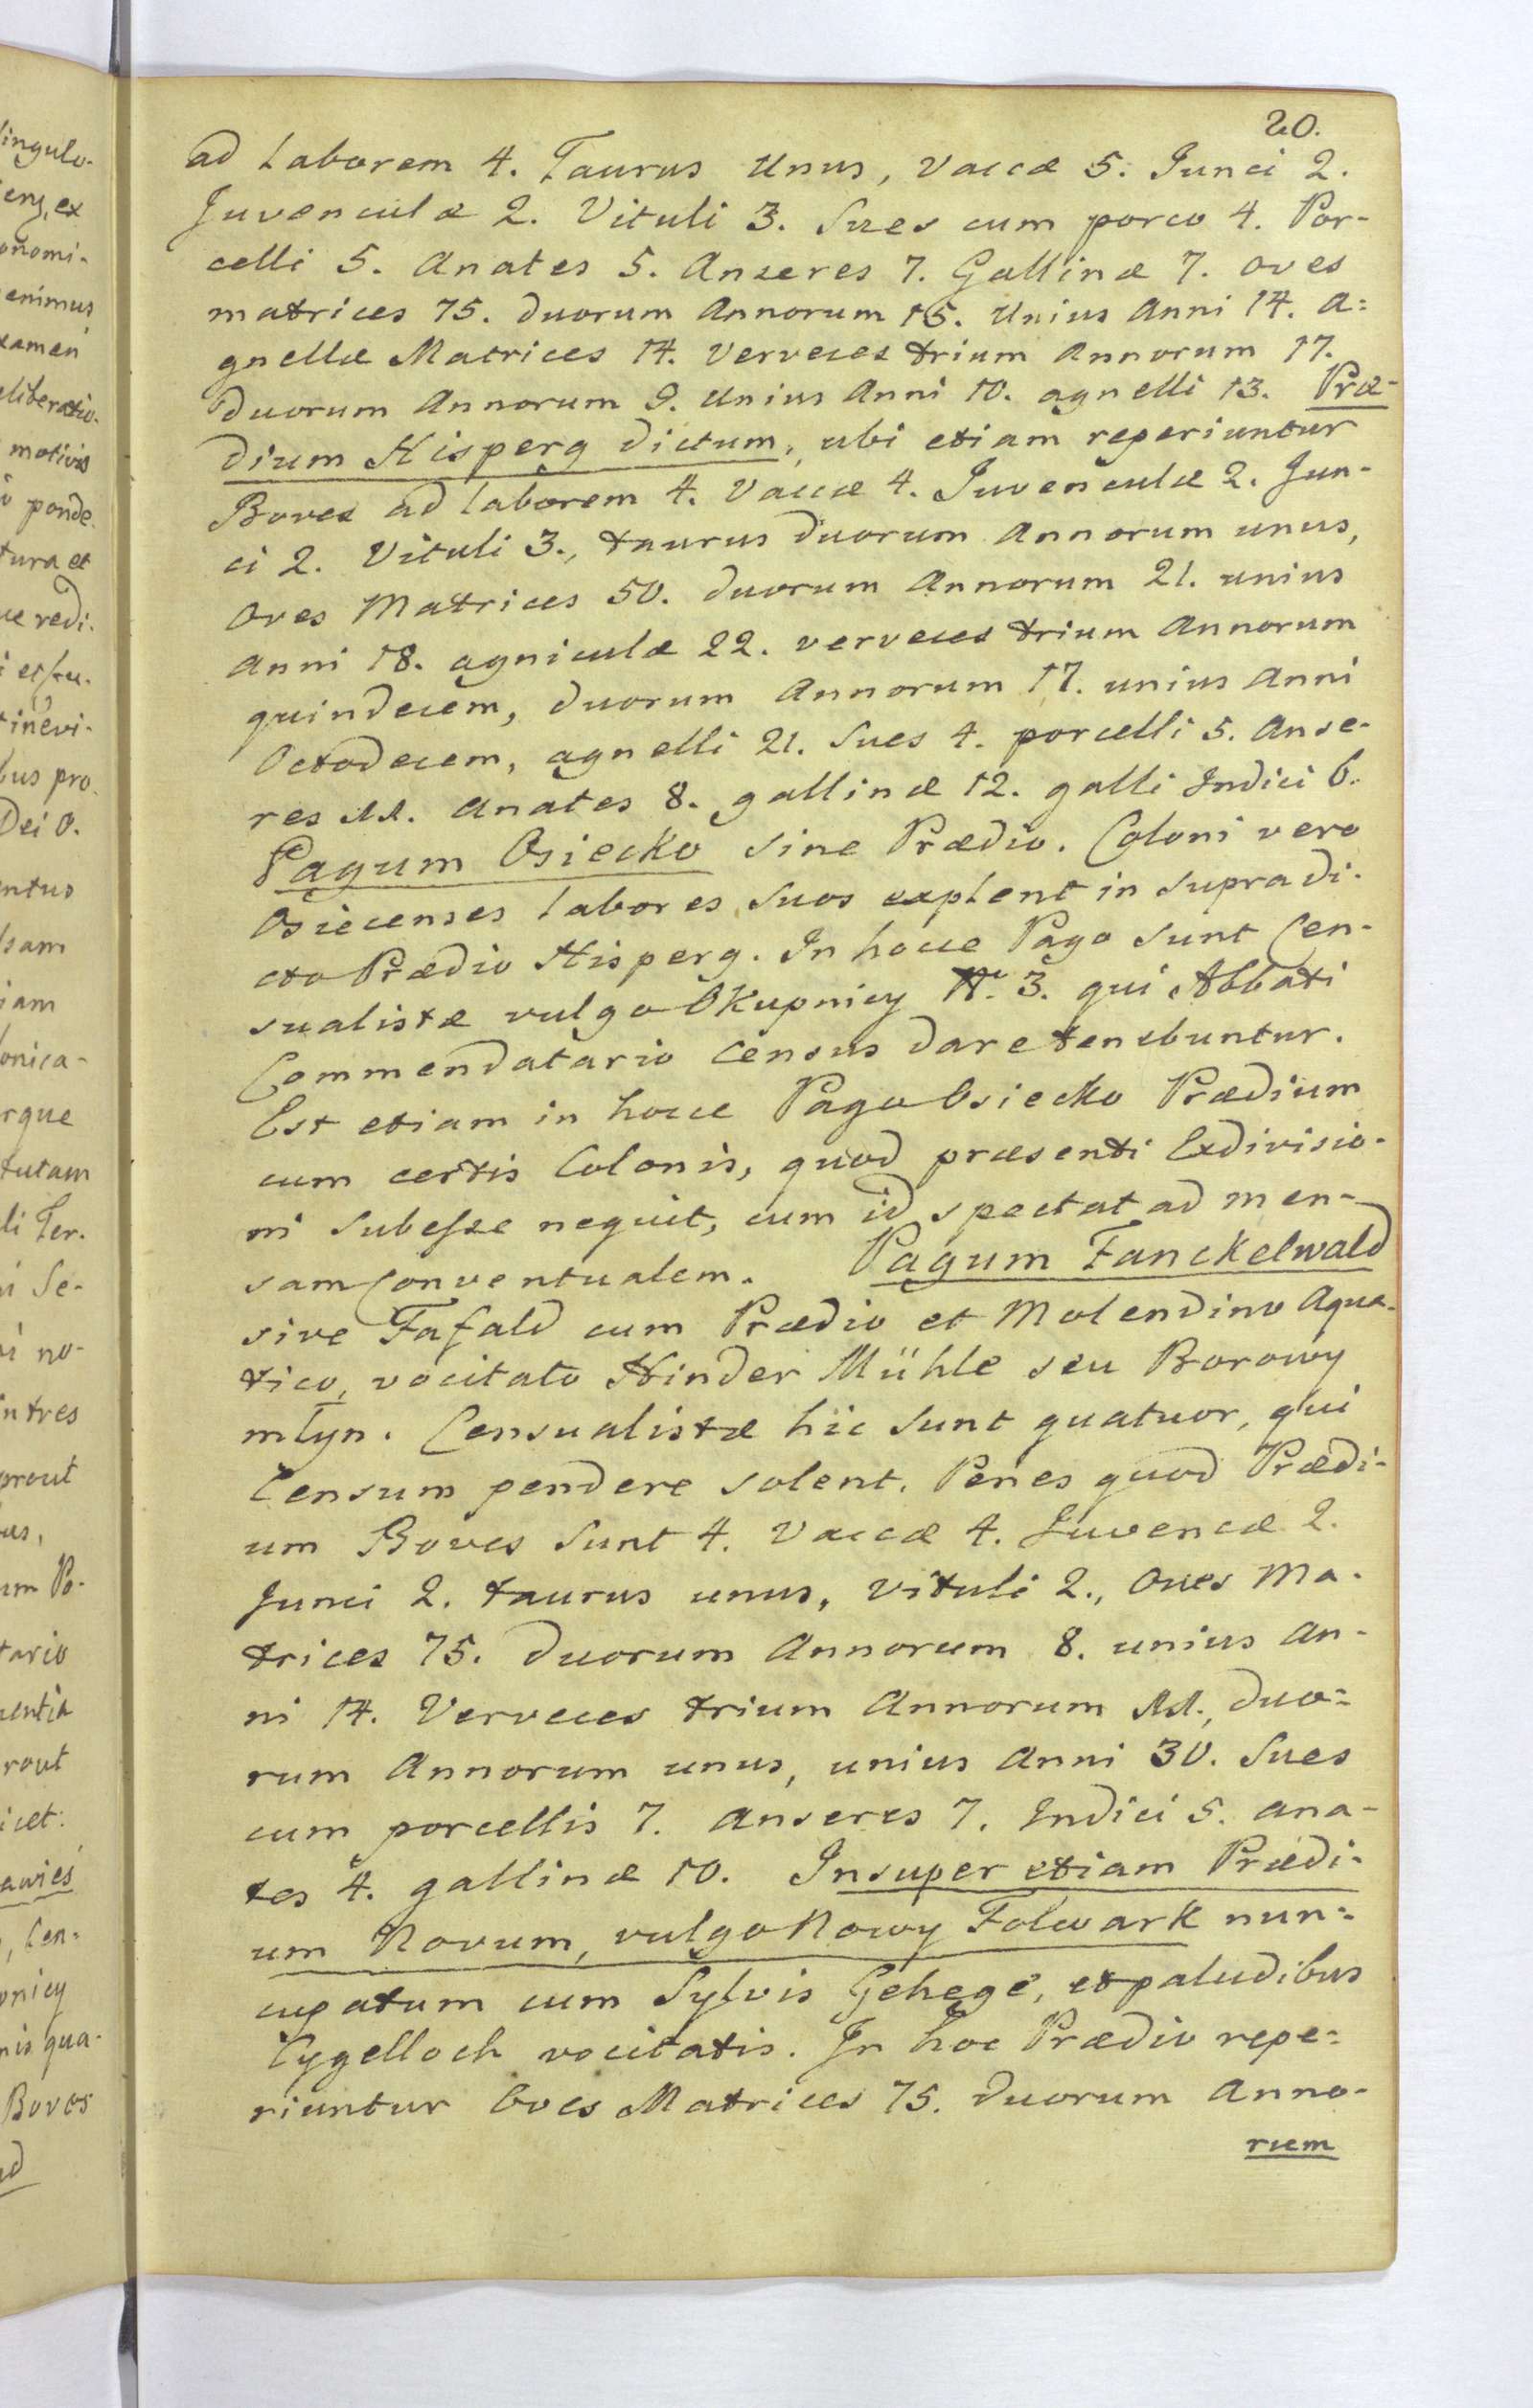 20.
ad laborem 4. Taurus Unus, Vaccæ 5. Junci 2.
Juvenculæ 2. Vituli 3. Sues cum porco 4. Por-
celli 5. Anates 5. Anseres 7. Gallinæ 7. oves
matrices 75. duorum Annorum 15. Unius Anni 14. A=
gnellæ Matrices 14. Verveces trium Annorum 17.
duorum Annorum 9. Unius Anni 10. agnelli 13. Præ-
dium Hisperg dictum, ubi etiam reperiuntur
Boves ad laborem 4. Vaccæ 4. Juvenculæ 2. Jun-
ci 2. Vituli 3., taurus duorum Annorum unus,
Oves Matrices 50. duorum Annorum 21. unius
Anni 18. agniculæ 22. verveces trium Annorum
quindecem, duorum Annorum 17. unius Anni
Octodecem, agnelli 21. Sues 4. porcelli 5. Anse-
res 11. Anates 8. gallinæ 12. galli Indici 6.
Pagum Osiecko sine Prædio. Coloni vero
Osiecenses labores suos explent in supradi-
cto Prædio Hisperg. In hocce Pago sunt Cen-
sualistæ vulgo Okupnicy Nº. 3. qui Abbati
Commendatario Census dare tenebuntur.
Est etiam in hocce Pago Osiecko Prædium
cum certis Colonis, quod præsenti Exdivisio-
ni subesse nequit, cum id spectat ad men-
sam Conventualem. Pagum Fanckelwald
sive Fafald cum Prædio et Molendino Aqua-
tico, vocitato Hinder Mühle seu Borowy
mlyn. Censualistæ hic sunt quatuor, qui
Censum pendere solent. Penes quod Prædi-
um Boves sunt 4. Vaccæ 4. Juvencæ 2.
Junci 2. taurus unus, vituli 2., Oves Ma-
trices 75. duorum Annorum 8. unius An-
ni 14. Verveces trium Annorum 11., duo=
rum Annorum unus, unius Anni 30. Sues
cum porcellis 7. Anseres 7. Indici 5. ana-
tes 4. gallinæ 10. Insuper etiam Prædi-
um Novum, vulgo Nowy Folwark nun=
cupatum cum Sylvis Gehege, et paludibus
Cygelloch vocitatis. In hoc Prædio repe=
riuntur Oves Matrices 75. duorum Anno-
rum